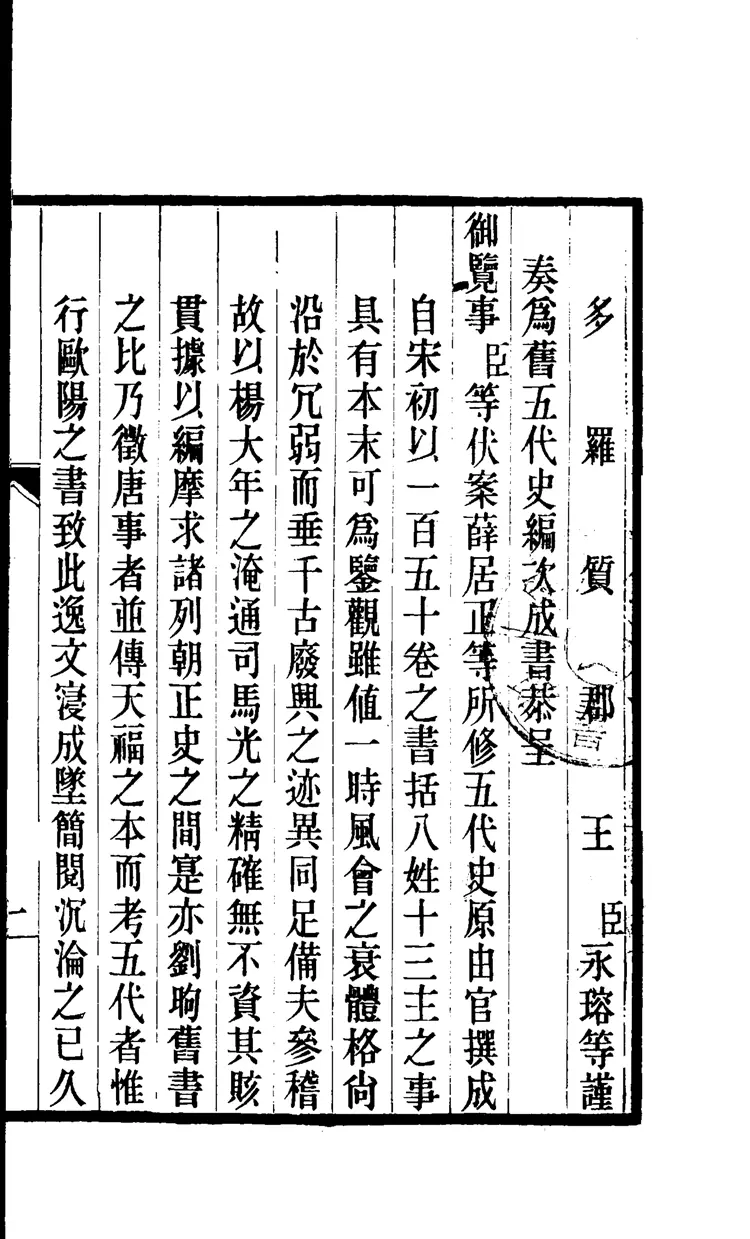 多羅質郡王臣永瑢等謹
奏爲舊五代史編次成書恭呈
御覽事臣等伏案薛居正等所修五代史原由官撰成
自宋初以一百五十卷之書括八姓十三主之事
具有本末可爲鑒觀雖値一時風會之衰體格尙
沿於冗弱而垂千古廢興之迹異同足備夫參稽
故以楊大年之淹通司馬光之精確無不資其賅
貫據以編摩求諸列朝正史之間寔亦劉昫舊書
之比乃徵唐事者並傳天福之本而考五代者惟
行歐陽之書致此逸文寖成墜簡閱沉淪之已久
一